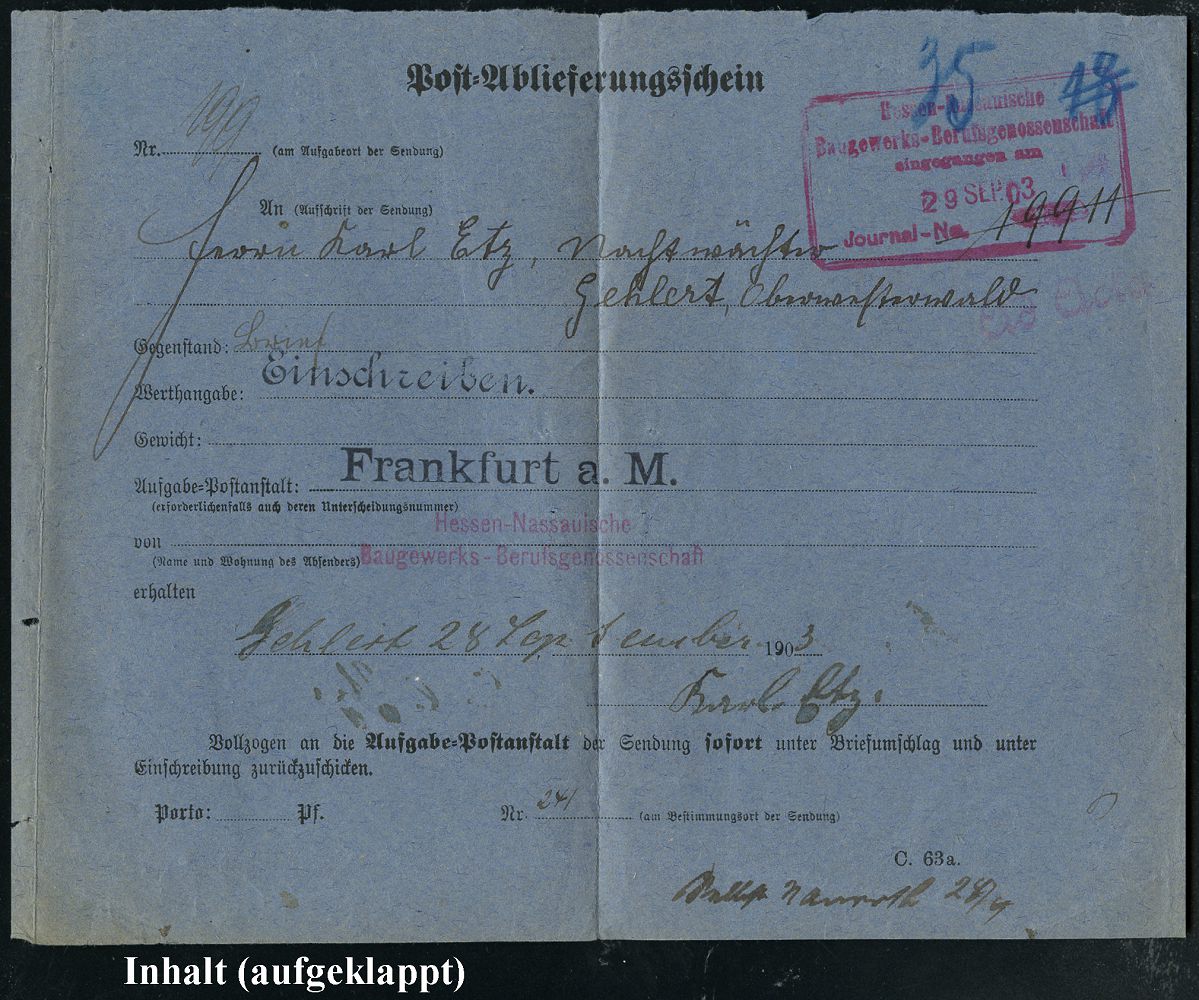 35 18
Post-Ablieferungsschein
Hessen-Nassauische
Baugewerks-Berufsgenossenschaft
eingegangen am
29 SEP. 03
Journal-No. 19911
Nr. 199 (am Aufgabeort der Sendung)
An (Aufschrift der Sendung)
Herrn Karl Etz, Nachtwächter
Gehlert, Oberwesterwald
Gegenstand: Brief
Werthangabe: Einschreiben.
Gewicht:
Aufgabe-Postanstalt: Frankfurt a. M.
(erforderlichenfalls auch deren Unterscheidungsnummer)
Hessen-Nassauische
von
(Name und Wohnung des Absenders) Baugewerks-Berufsgenossenschaft
erhalten
Gehlert 28 September 1903
Karl Etz.
Vollzogen an die Aufgabe-Postanstalt der Sendung sofort unter Briefumschlag und unter
Einschreibung zurückzuschicken.
Porto: Pf. Nr. 241 (am Bestimmungsort der Sendung)
C. 63a.
28/9
Inhalt (aufgeklappt)